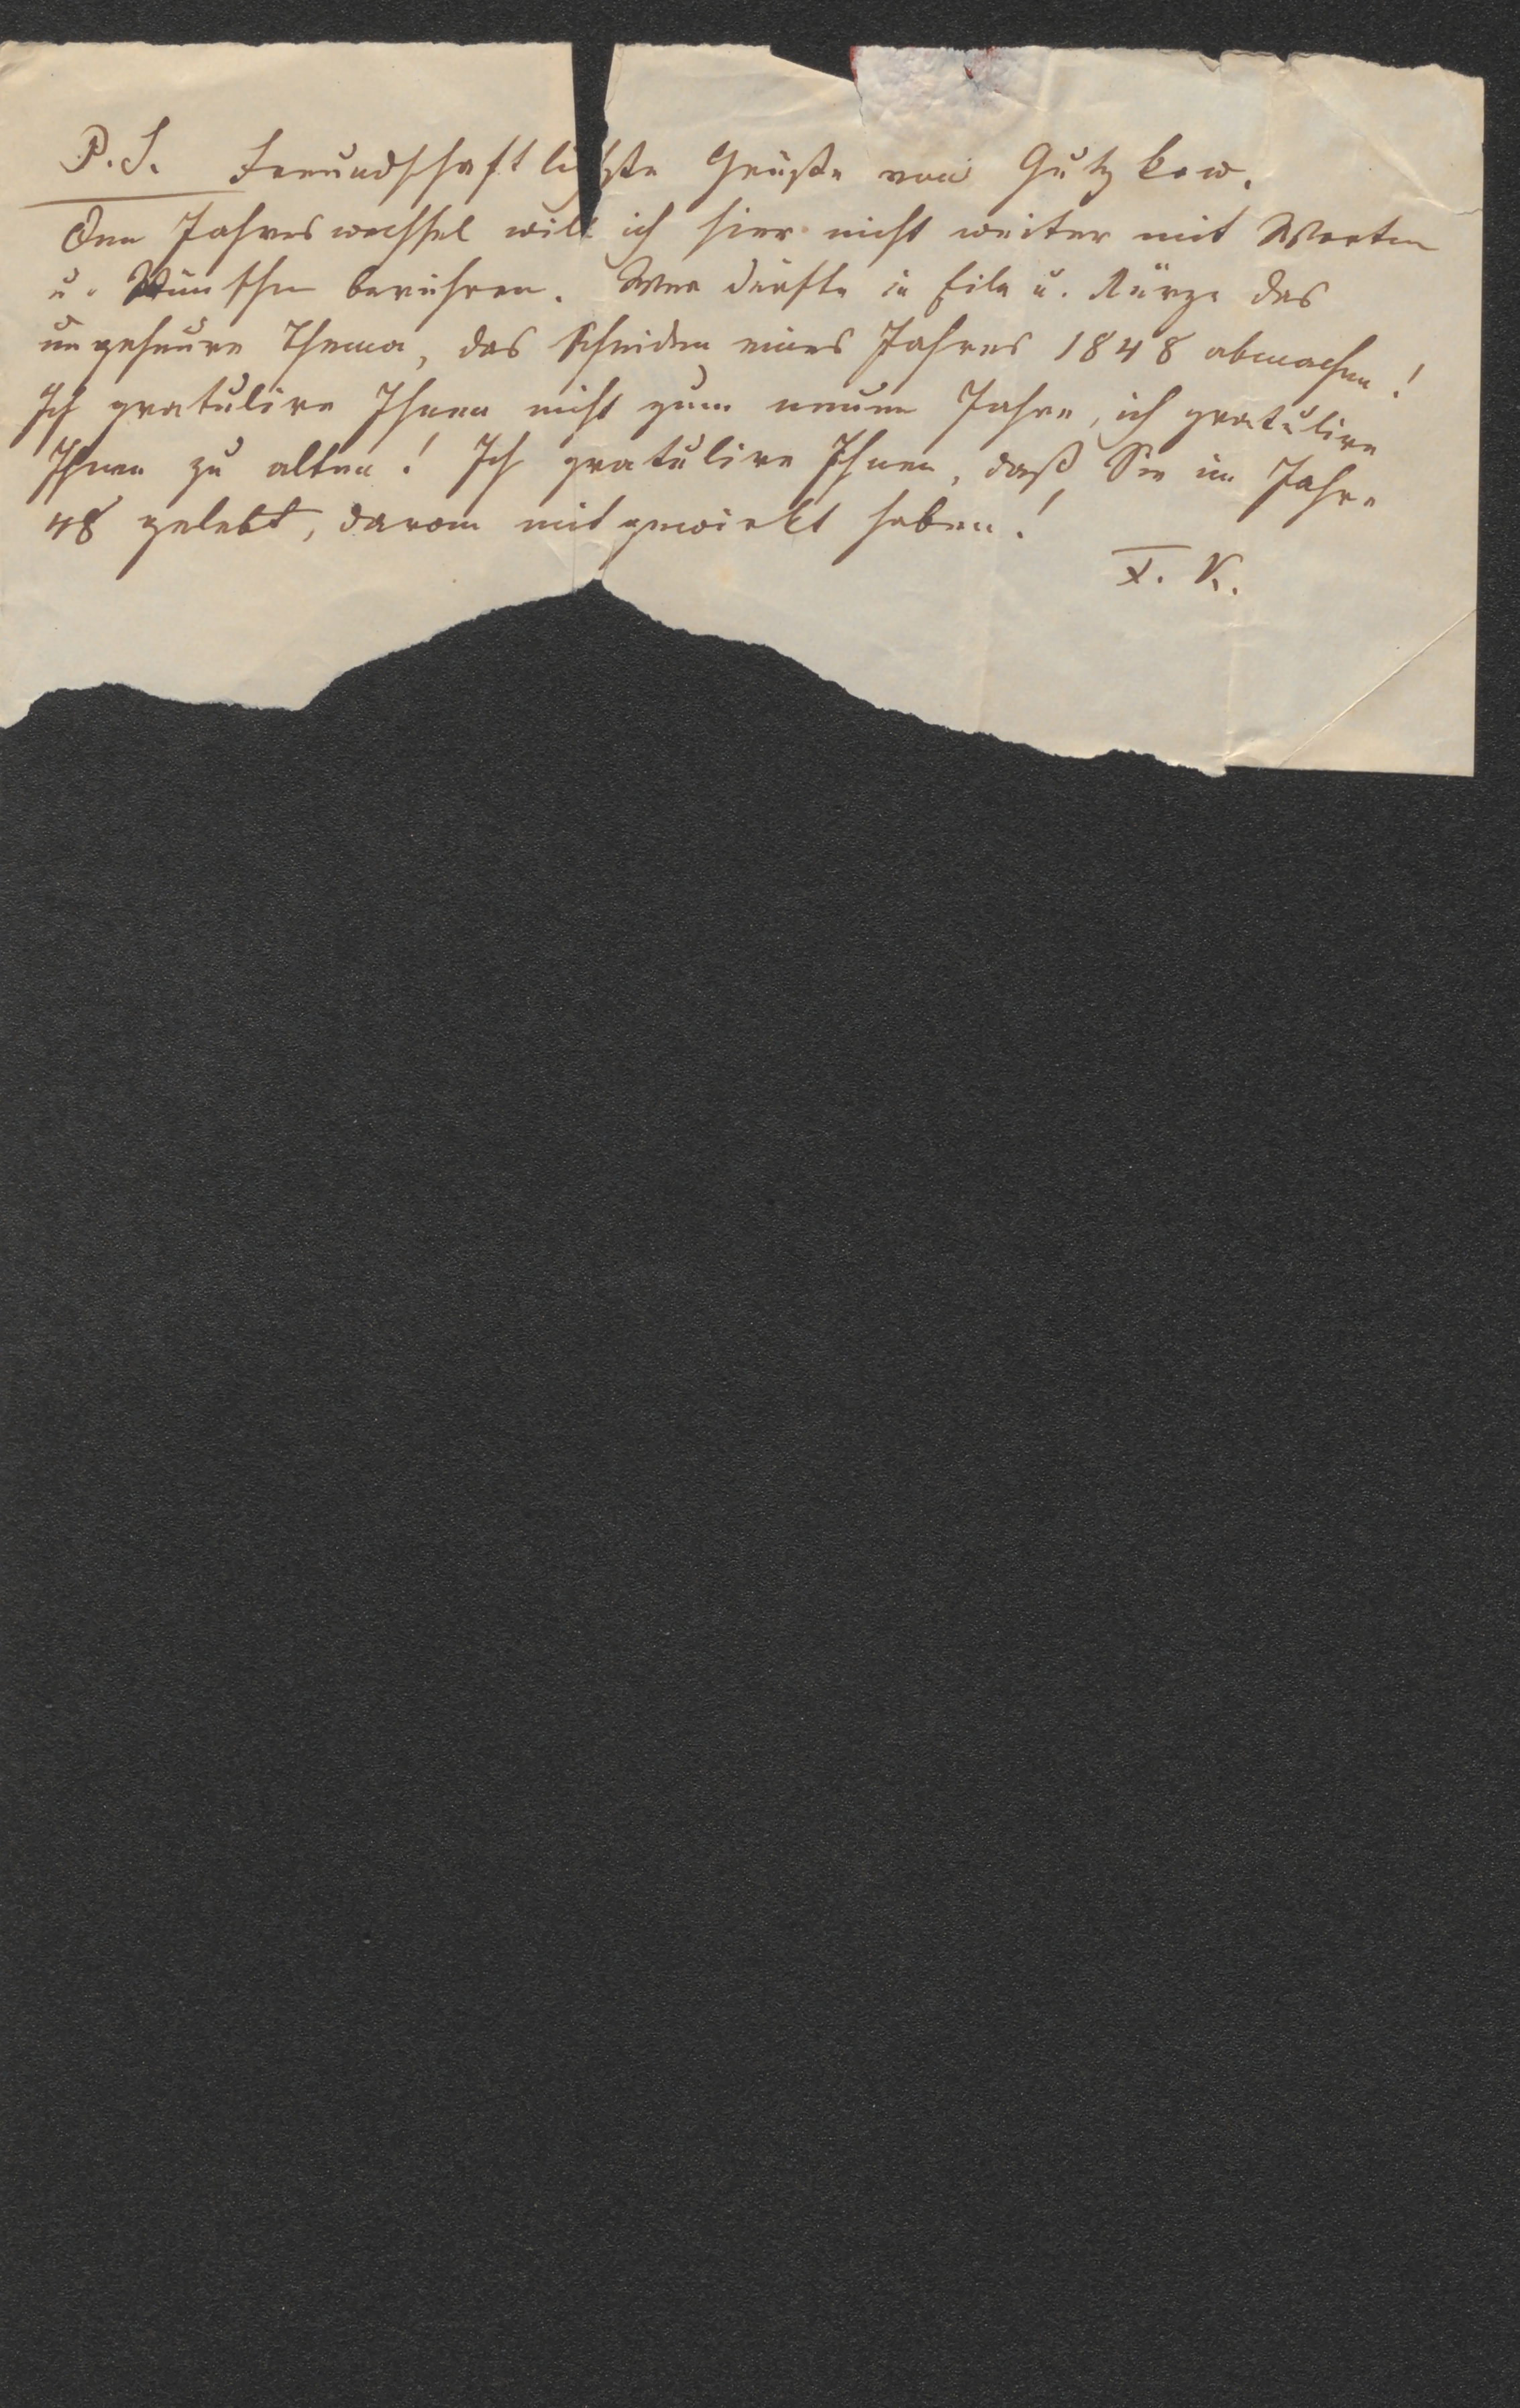 P.S. Freundschaftlichste Grüße von Gutzkow.
Den Jahreswechsel will ich hier nicht weiter mit Worten
u. Wünschen berühren. Wer dürfte in Eile u. Kürze das
ungeheure Thema, das Scheiden eines Jahres 1848 abmachen!
Ich gratulire Ihnen nicht zum neuen Jahre, ich gratulire
Ihnen zu alten! Ich gratulire Ihnen, daß Sie im Jahre
48 gelebt, darum mitgewirkt haben!
F. K.